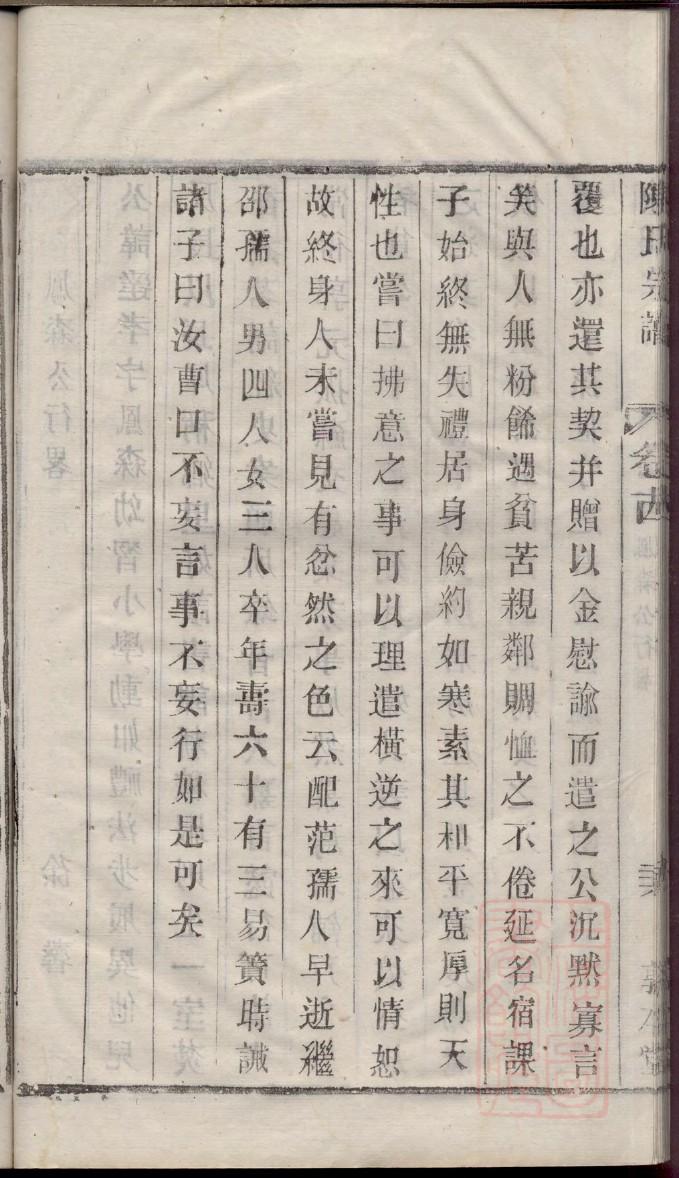 陳氏宗譜 卷 敦 堂
覆也亦還其契并贈以金慰諭而遣之公沉默寡言
笑與人無粉餙遇貧苦親鄰賙恤之不倦延名宿課
子始終無失禮居身儉約如寒素其和平寬厚則天
性也嘗曰拂意之事可以理遣橫逆之來可以情恕
故終身人未嘗見有忿然之色云配范孺人早逝繼
邵孺人男四人女三人卒年壽六十有三易簀時誡
諸子曰汝曹口不妄言事不妄行如是可矣